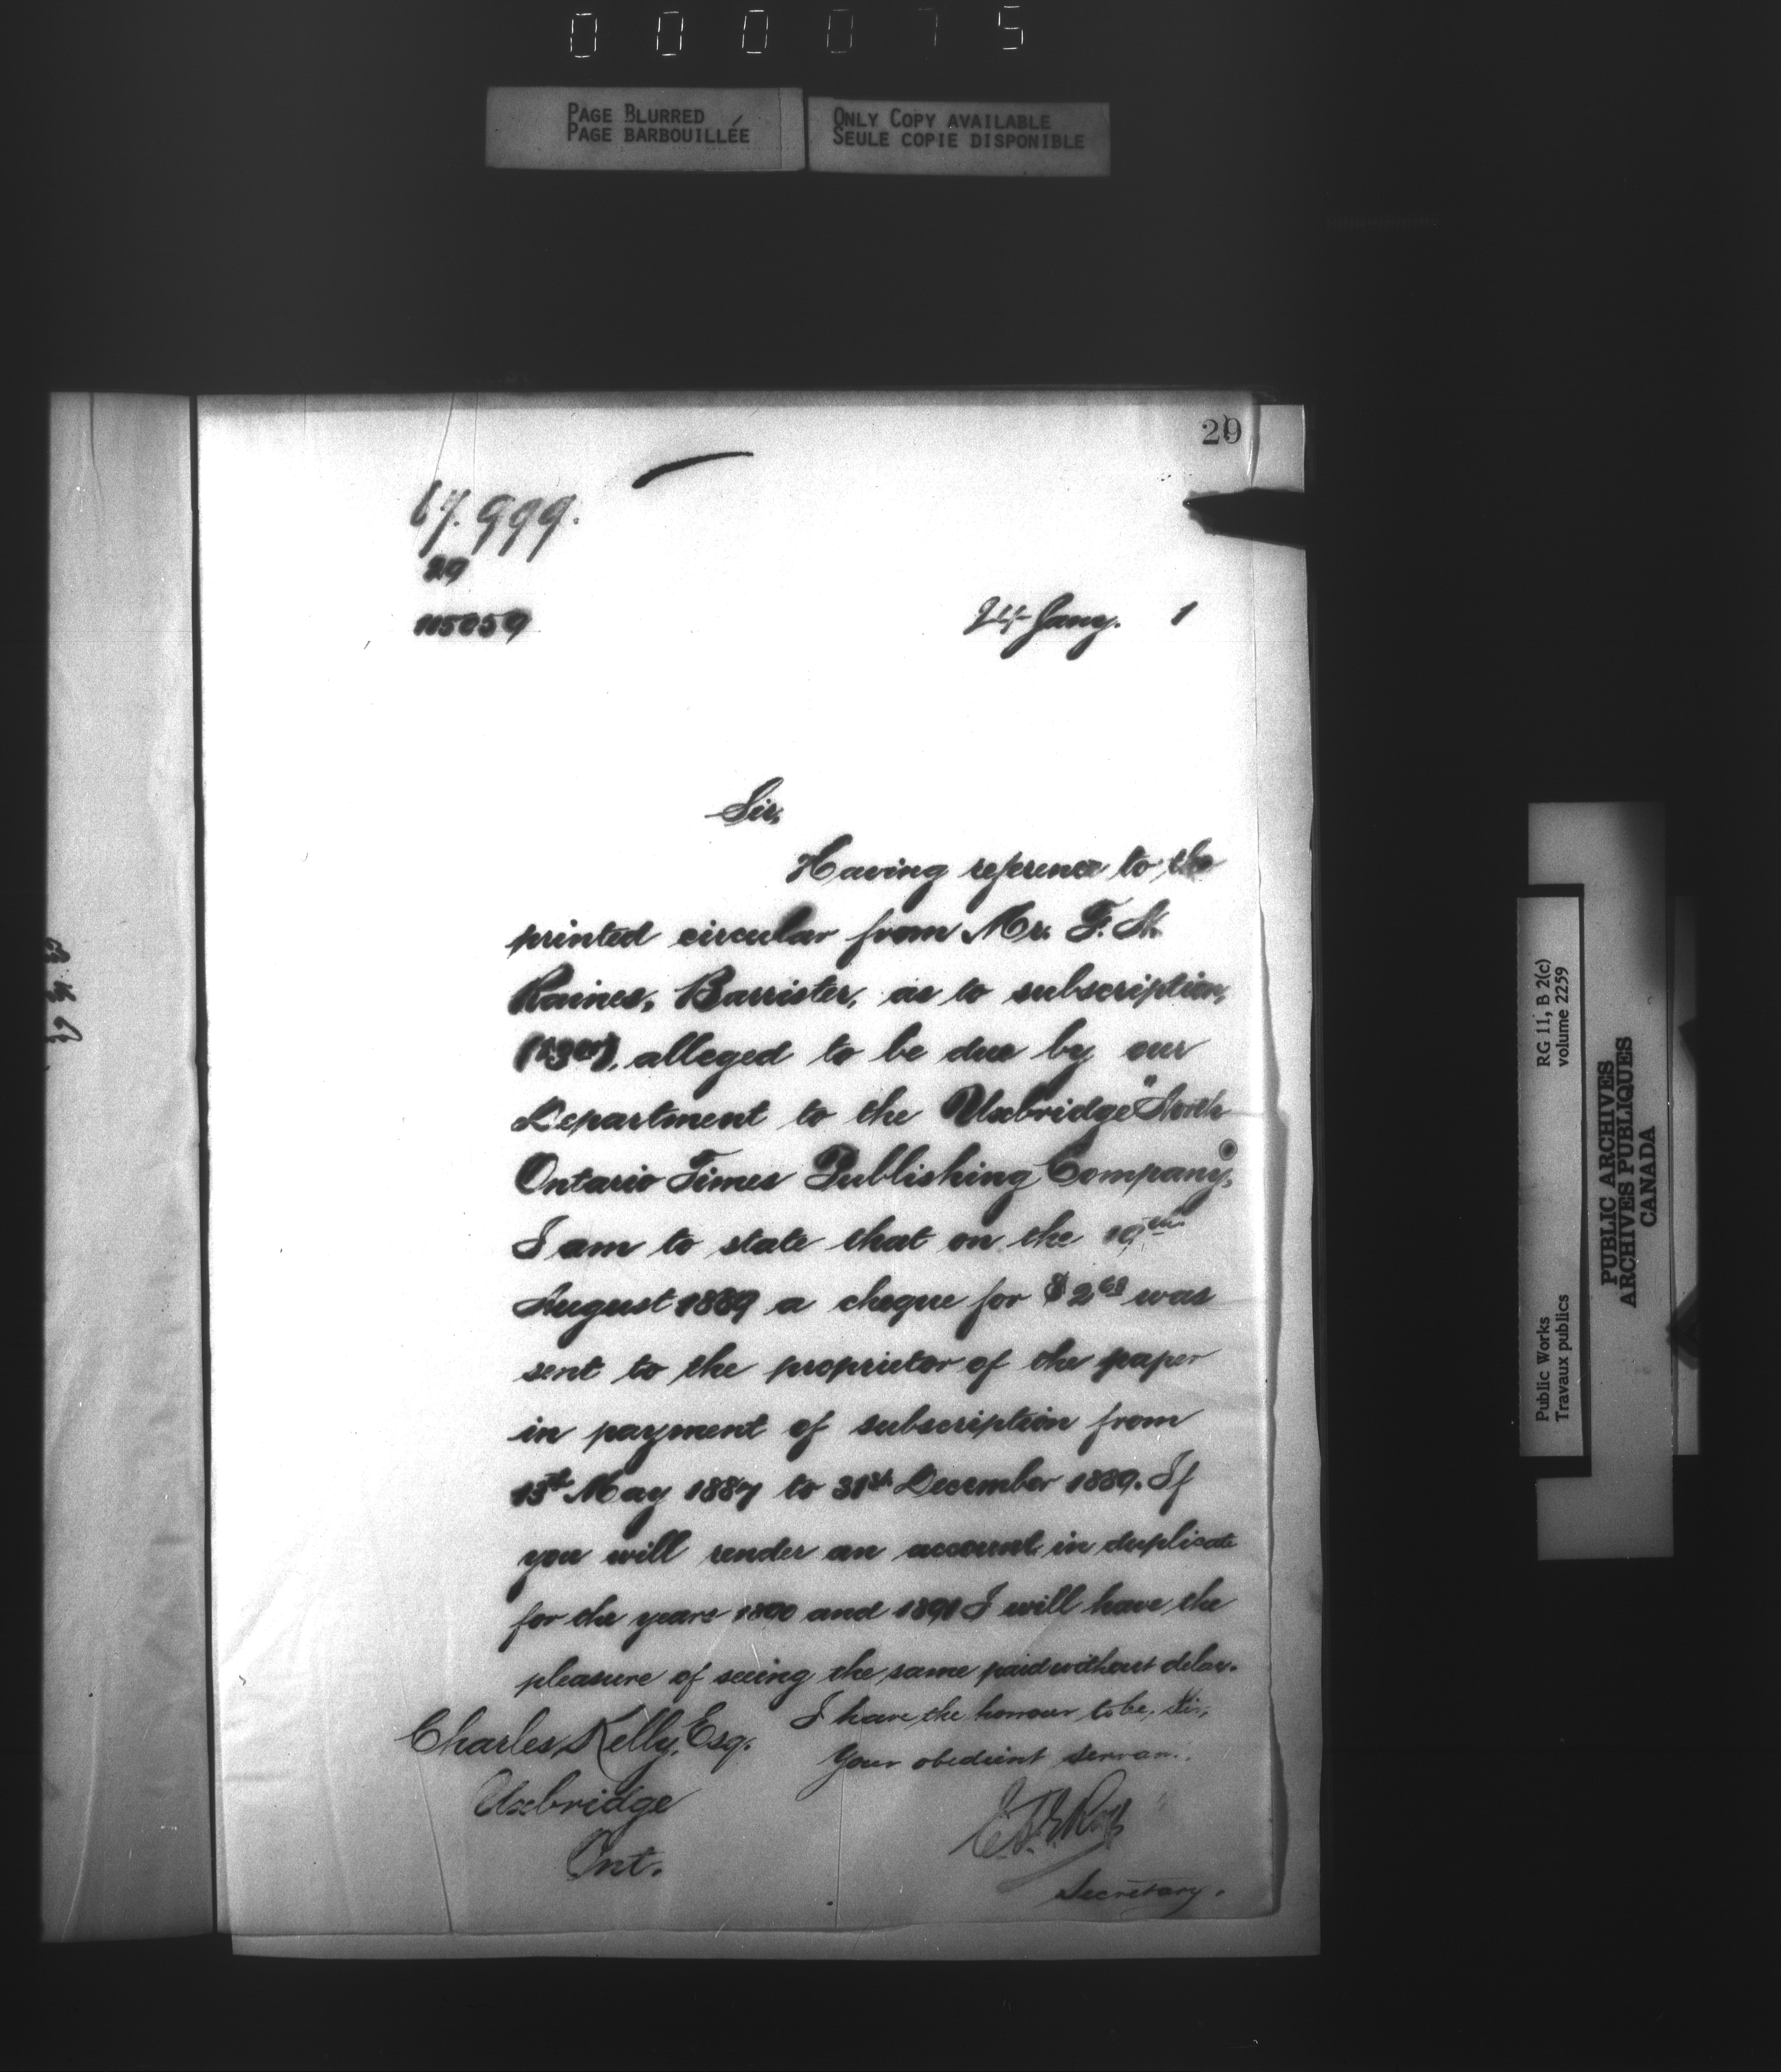 000075
PAGE BLURRED
PAGE BARBOUILLÉE
ONLY COPY AVAILABLE
SEULE COPIE DISPONIBLE
29
67.999.
29
115059
24 Jany. 1
Sir,
Having reference to the
printed circular from Mr. F.
Raines, Barrister, as to subscription,
alleged to be due by our
Department to the Uxbridge "North
Ontario Times Publishing Company",
I am to state that on the
August 1889 a cheque for $2 was
sent to the proprietor of the paper
in payment of subscription from
May 1887 to 31st December 1889. If
you will render an account in duplicate
for the years 1890 and 1891 I will have the
pleasure of seeing the same paid without delay.
I have the honour to be, Sir,
Your obedient servan..
Charles Kelly, Esq.
Uxbridge
Ont.
Secretary.
RG 11, B 2(c)
volume 2259
Public Works
Travaux publics
PUBLIC ARCHIVES
ARCHIVES PUBLIQUES
CANADA